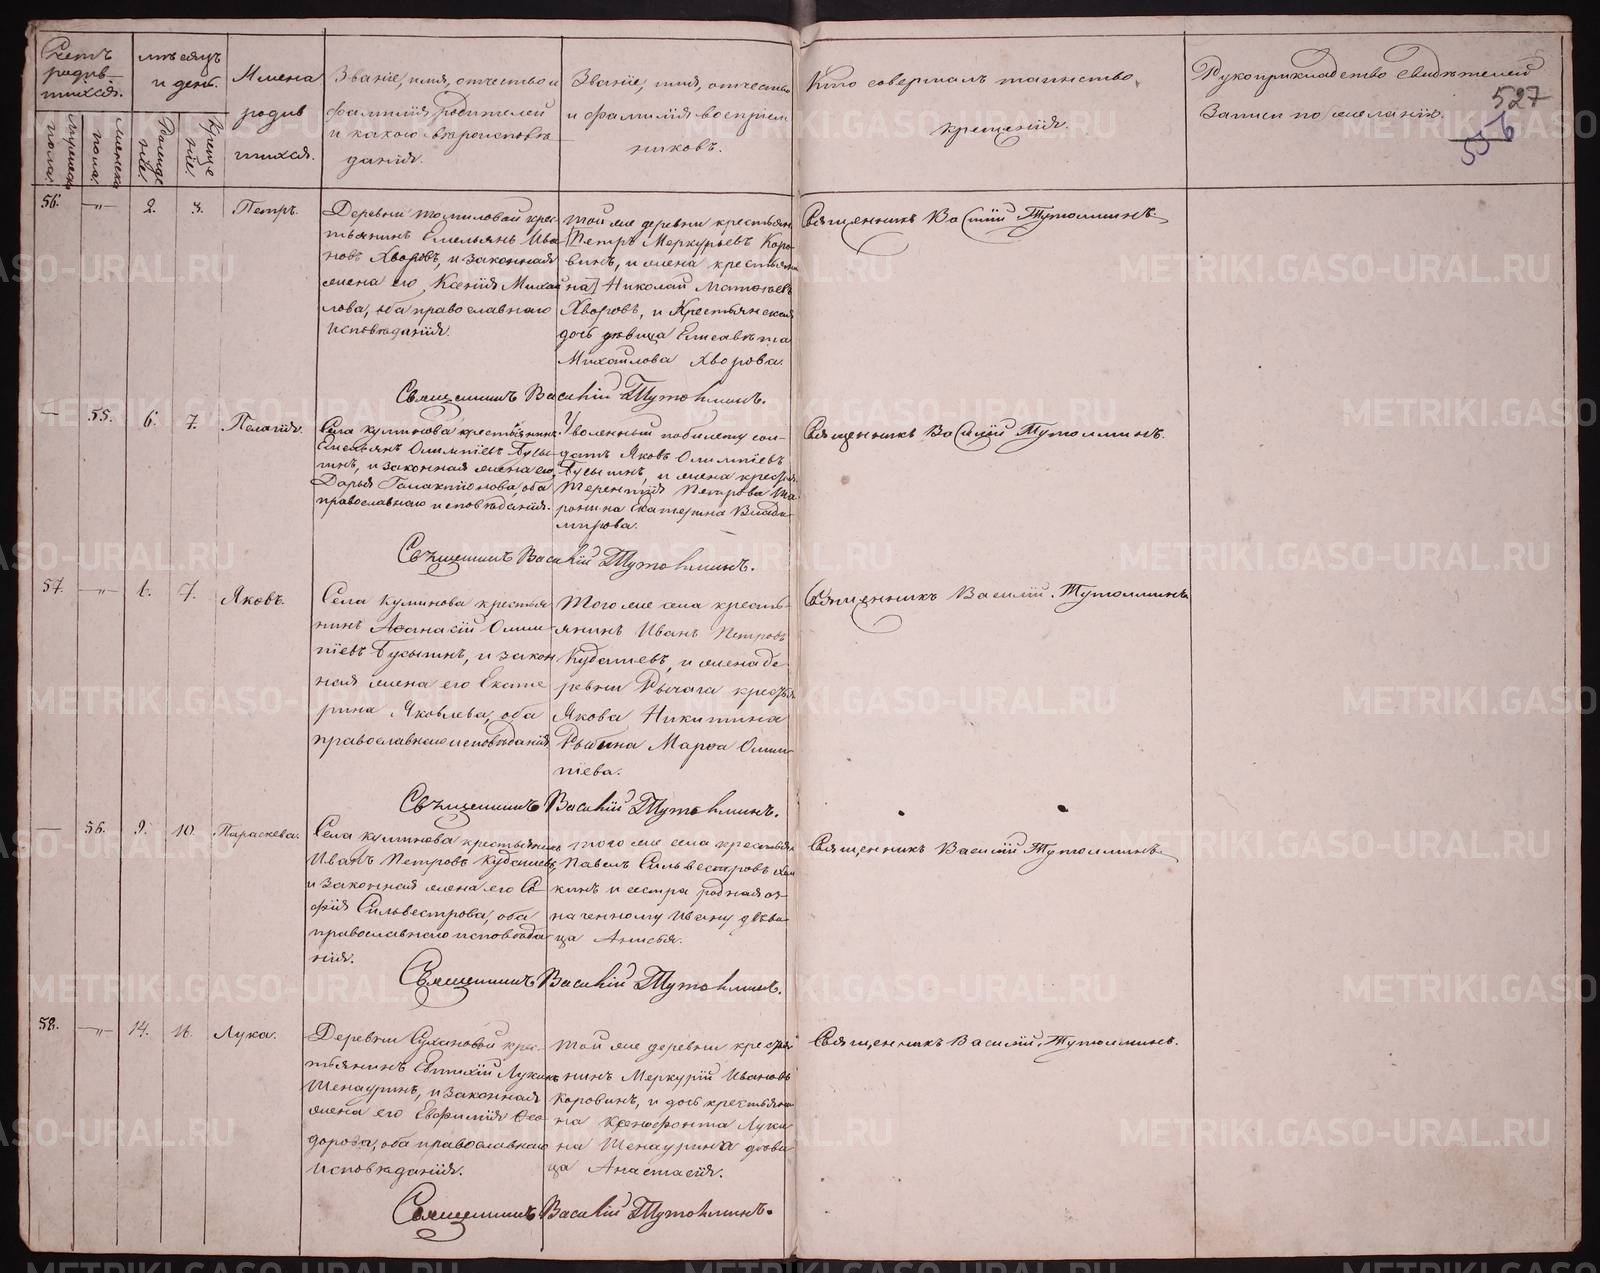 Счетъ родив-шихся.
Мужеска пола.
Женска пола.
мѣсяцъ и день.
Рожденіе.
Крещеніе.
Имена родившихся.
Званіе, имя, отчество и
фамилія родителей
и какого вѣроисповѣ
данія.
Званіе, имя, отчество
и фамилія воспріем
никовъ.
Кто совершалъ таинство
крещенія.
Рукоприкладство свидѣтелей
записи по желанію.
527
556
56. —„— 2. 3. Петръ.
Деревни Томиловой крес-
тьянинъ Емельянъ Ива
новъ Хворовъ, и законная
жена его, Ксенія Михай
лова, оба православнаго
исповѣданія.
той же деревни крестьян
Петръ Меркурьевъ Коро-
винъ, и жена крестьяни
на Николай Матвѣевъ
Хворовъ, и Крестьянская
дочь дѣвица Елисавѣта
Михайлова Хворова.
Священникъ Василій Тутолминъ.
Священникъ Василій Тутолминъ.
— 55. 6. 7. Пелагія.
Села Куминова крестьянинъ
Емельянъ Олимпіевъ Бусы-
гинъ, и законная жена его,
Дарья Галактіонова, оба
православнаго исповѣданія.
Уволенный по билету сол-
датъ Яковъ Олимпіевъ
Бусыгинъ, и жена крестья
Терентія Петрова
Екатерина Влади-
мирова.
Священникъ Василій Тутолминъ.
Священникъ Василій Тутолминъ.
57. —„— 6. 7. Яковъ.
Села Куминова крестья
нинъ Аѳанасій Олим-
піевъ Бусыгинъ, и закон
ная жена его Екате
рина Яковлева, оба
православнаго исповѣданія
Того же села кресть-
янинъ Иванъ Петровъ
Кудашевъ, и жена де-
ревни Рычага крестья
Якова Никитина
Рыбина Марѳа Олим-
піева.
Священникъ Василій Тутолминъ.
Священникъ Василій Тутолминъ.
— 56. 9. 10. Параскева.
Села Куминова крестьянинъ
Иванъ Петровъ Кудашевъ,
и законная жена его Со
фія Сильвестрова, оба
православнаго исповѣда
нія.
того же села крестьян
Павелъ Сильвестровъ
кинъ и сестра родная оз-
наченному Ивану дѣви-
ца Анисья.
Священникъ Василій Тутолминъ.
Священникъ Василій Тутолминъ.
58. —„— 14. 16. Лука.
Деревни Сухановой крес-
тьянинъ Евтихій Лукинъ
Шенауринъ, и законная
жена его Евфимія Ѳео-
дорова, оба православнаго
исповѣданія.
той же деревни крестья
нинъ Меркурій Ивановъ
Коровинъ, и дочь крестьяни
на Ксенофонта Луки
на Шенаурина дѣви
ца Анастасія.
Священникъ Василій Тутолминъ.
Священникъ Василій Тутолминъ.
METRIKI.GASO-URAL.RU